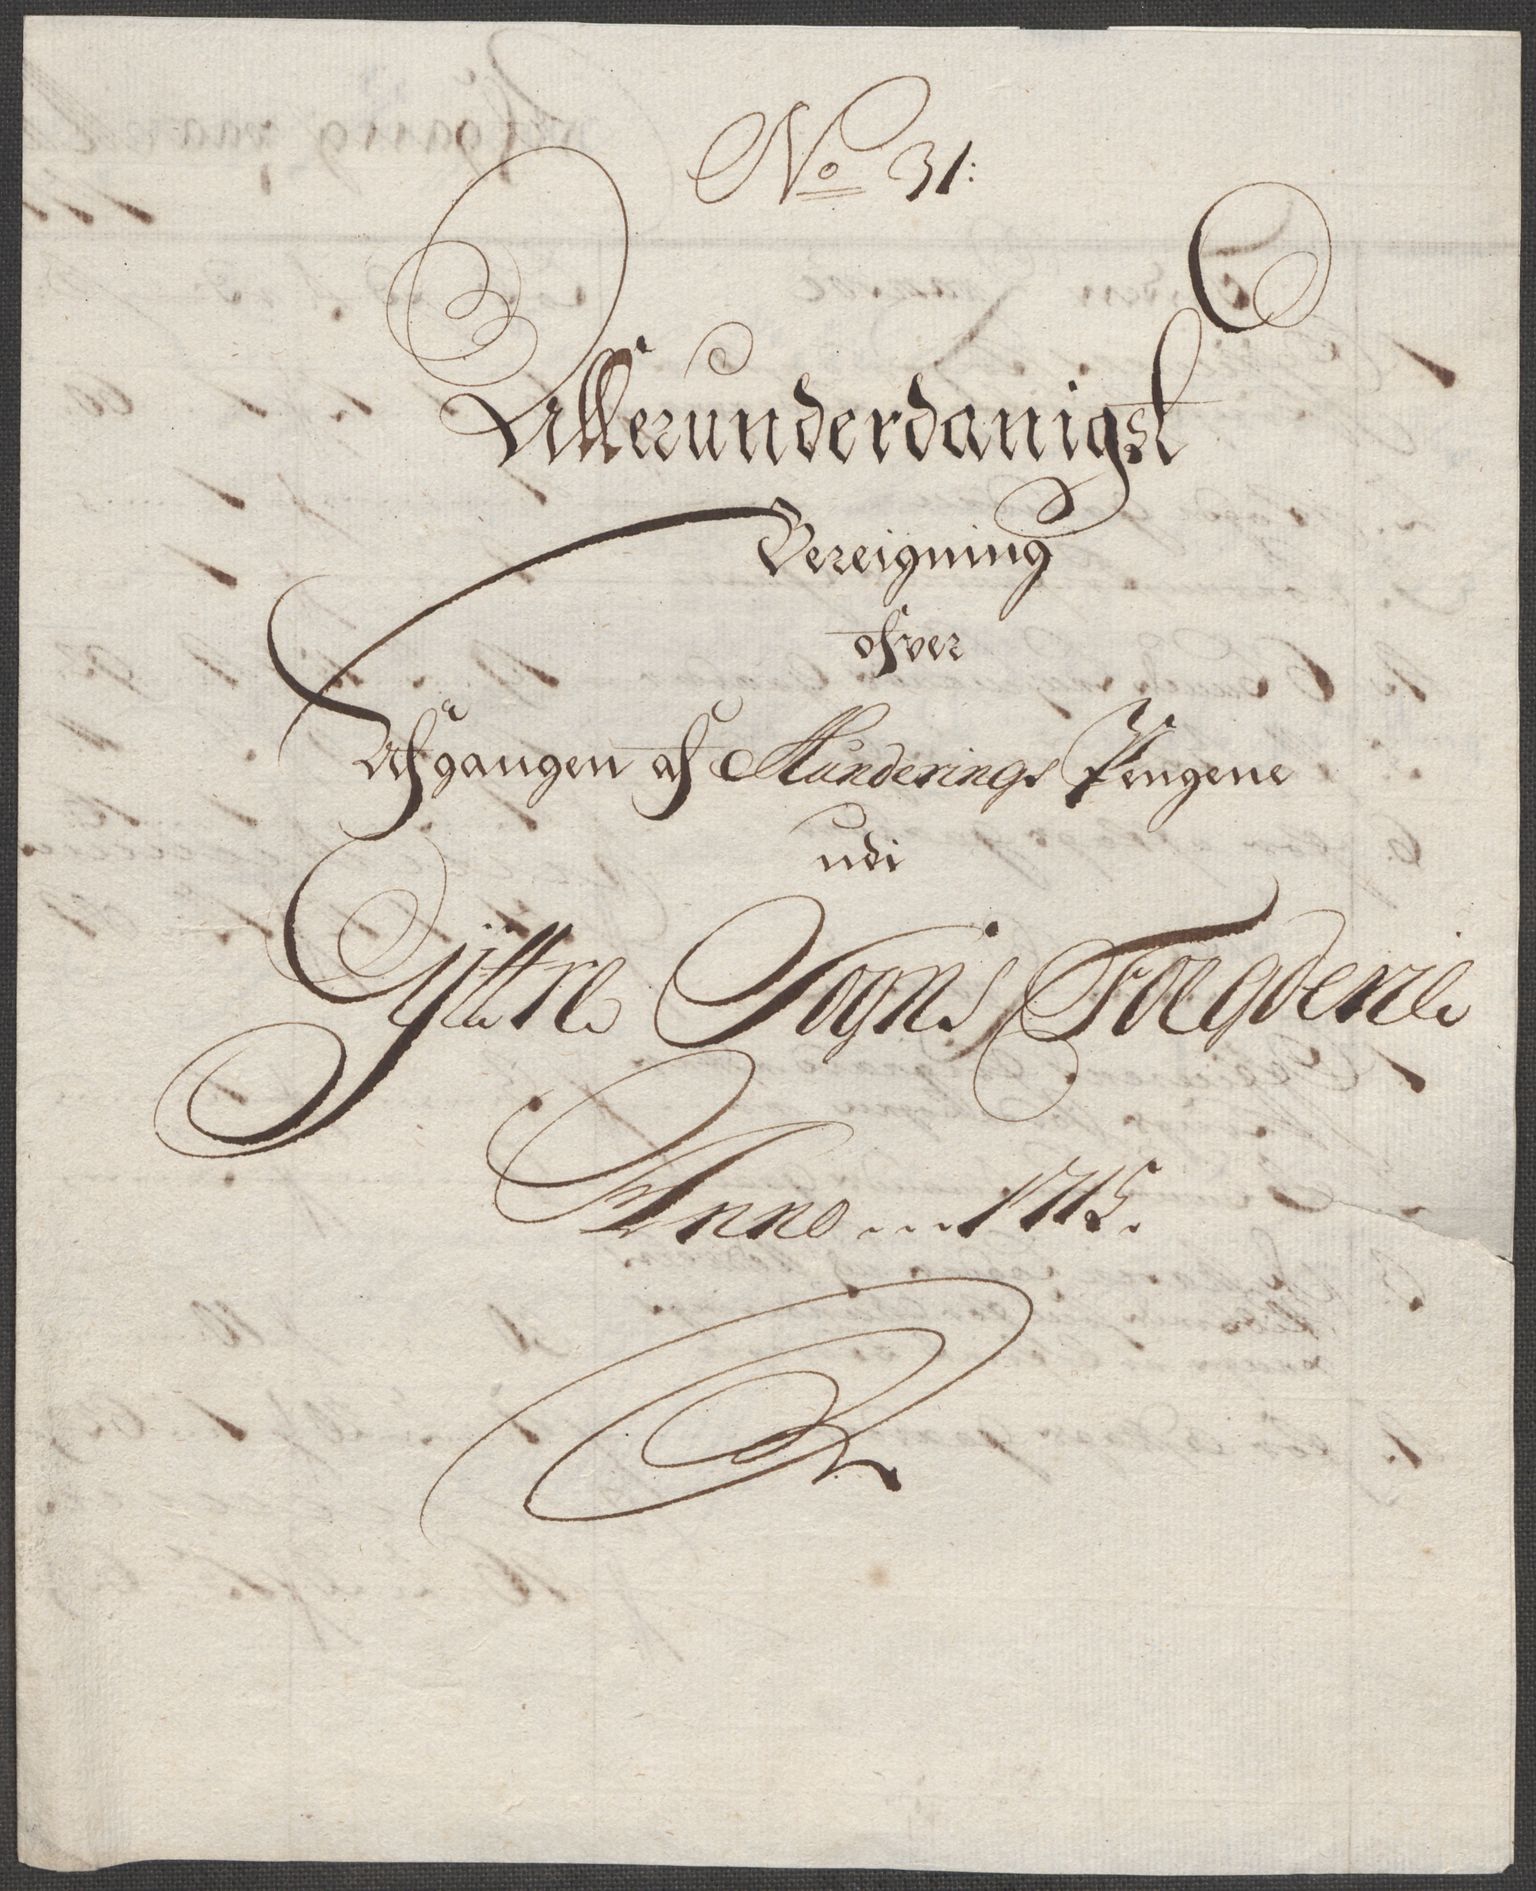 No 31:
Allerunderdanigst
Bereigning
ofver
Afgangen af Munderings Pengene
udi
Yttre Sogns Foegderie
Anno ... 1715.